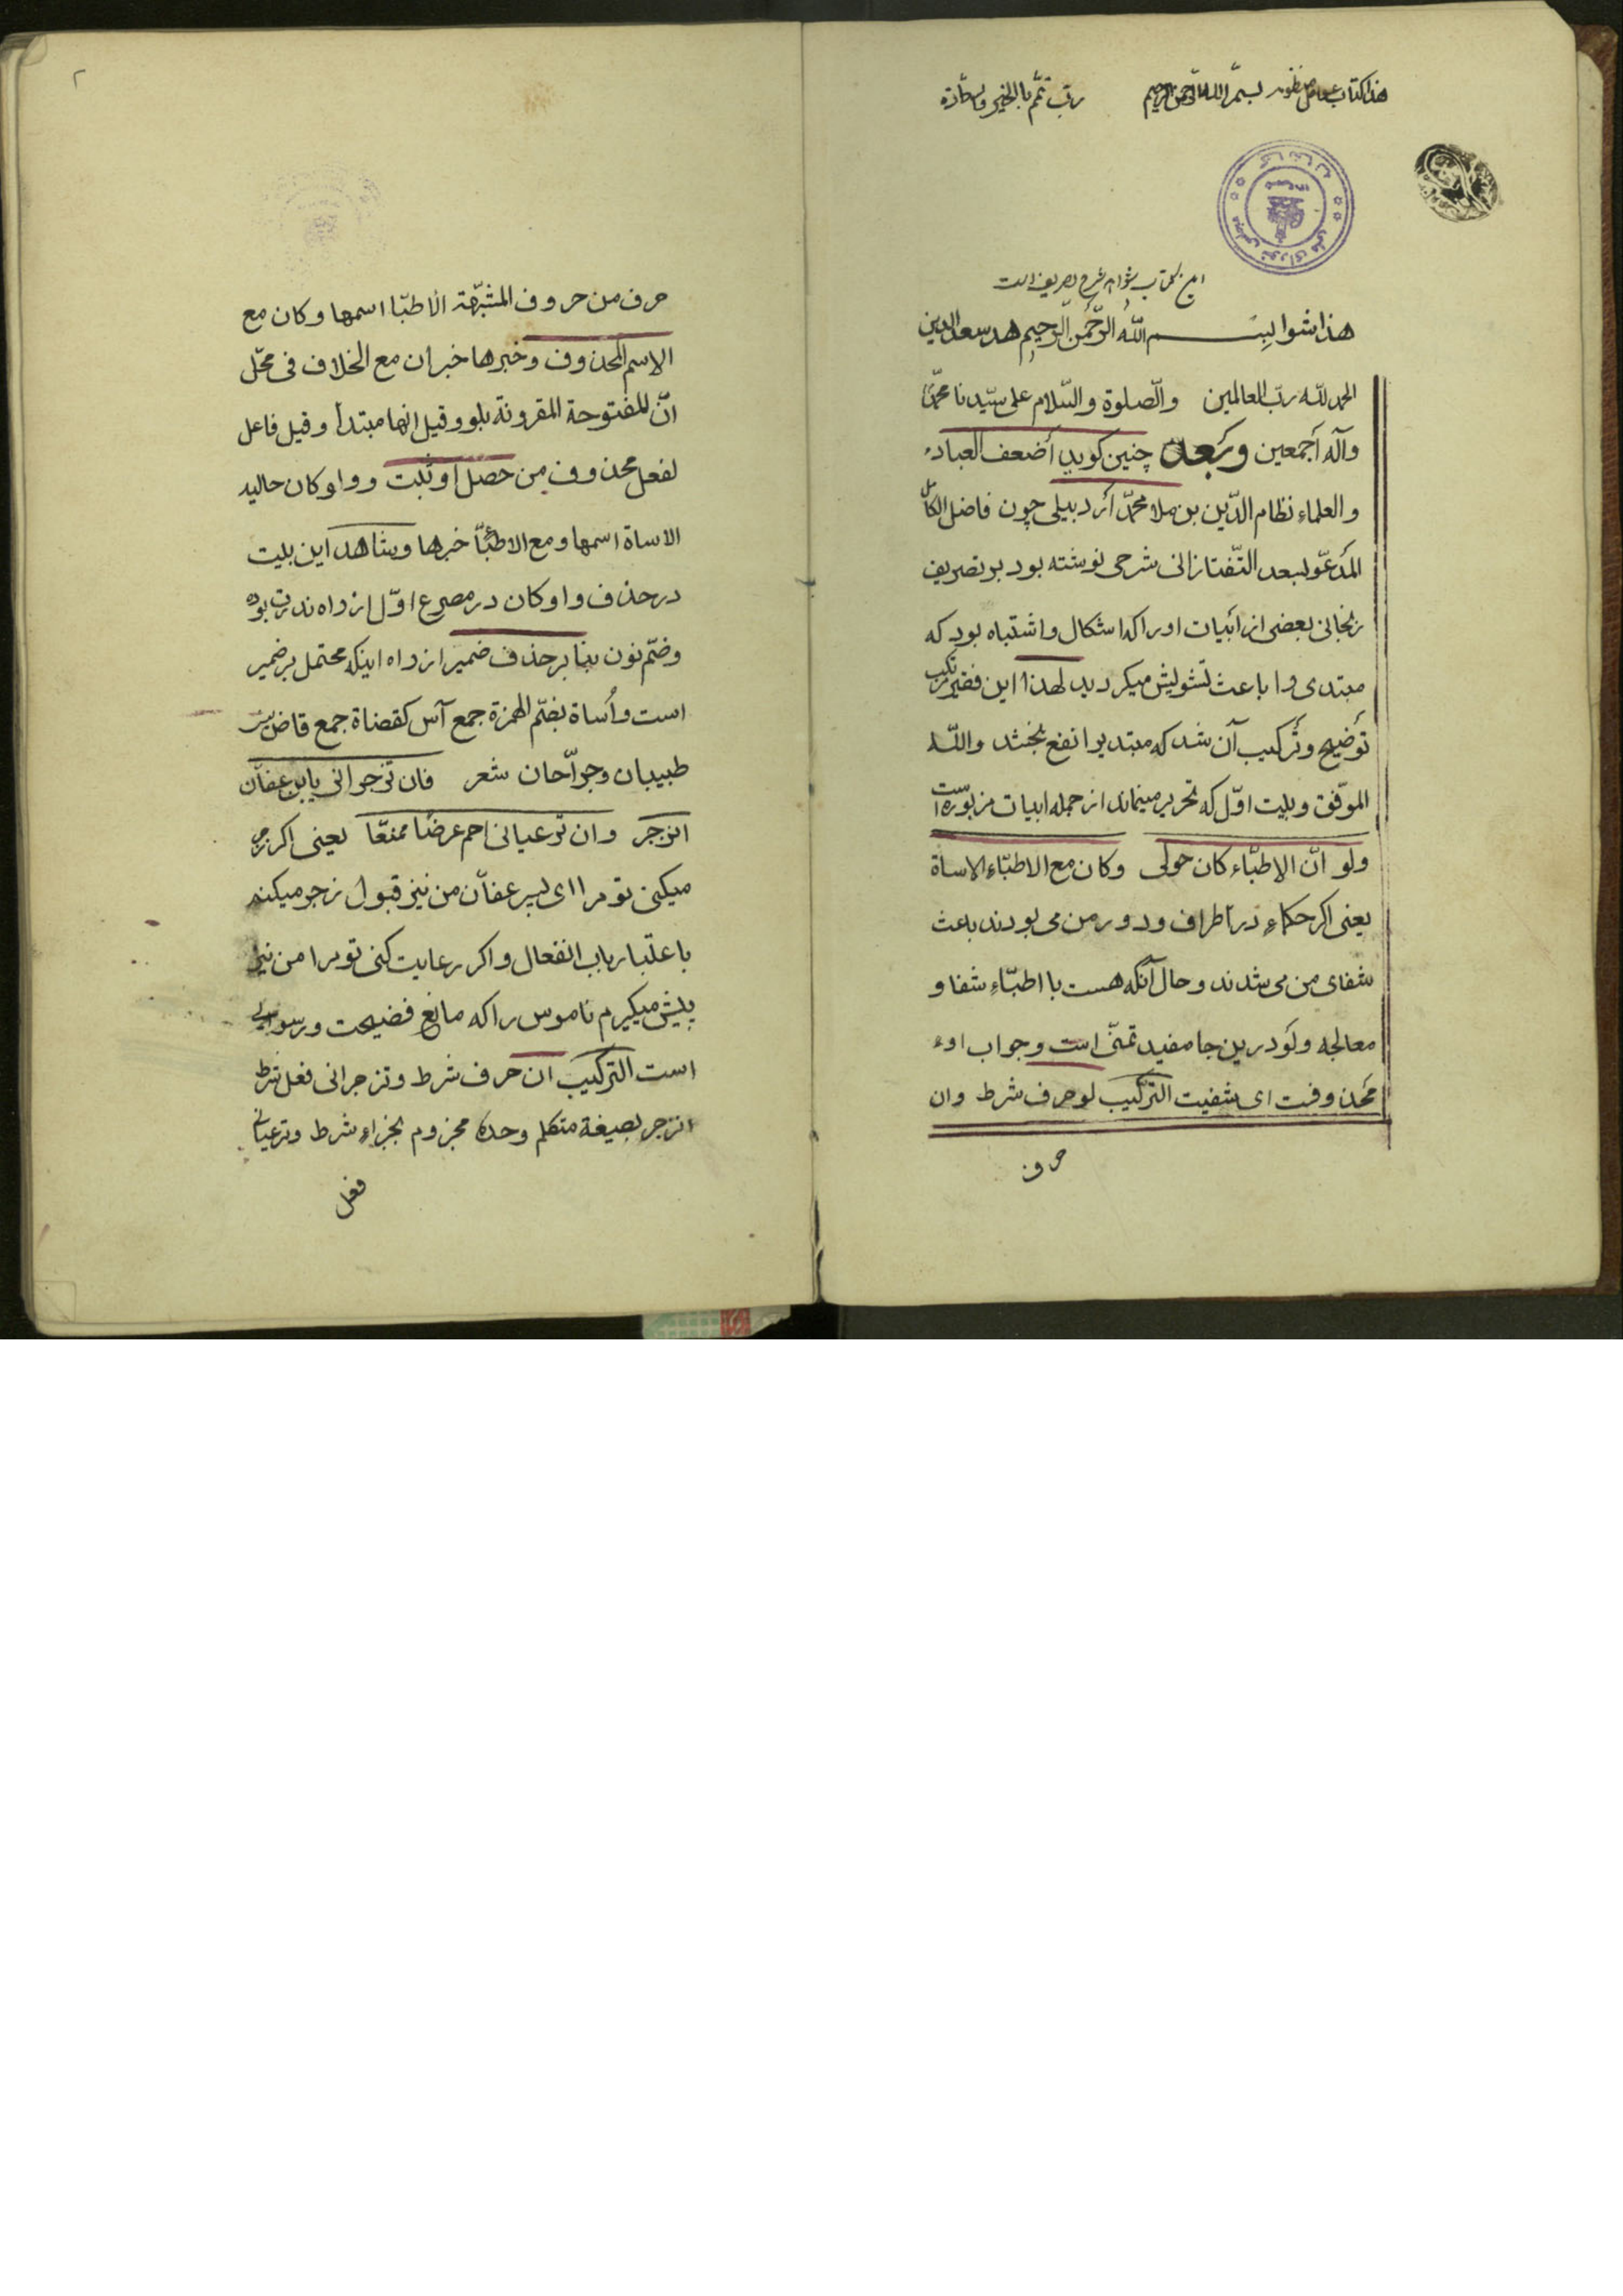 هذا کتاب عوامل منظومه بسم الله الرحمن الرحیم رب تمم بالخیر
این کتاب شواهد شرح تصریف است
هذا شوا بسم الله الرحمن الرحیم هد سعد الدین
الحمد لله رب العالمین والصلوة والسلام علی سیدنا محمد
وآله أجمعین وبعد چنین کوید أضعف العباد
والعلماء نظام الدین بن ملا محمد أردبیلی چون فاضل الکامل
المدعو بسعد التفتازانی شرحی نوشته بود بر تصریف
زنجانی بعضی از أبیات اورا که اشکال واشتباه بود که
مبتدی را باعث تشویش میکردید لهذا این فقیر مرتکب
توضیح وترکیب آن شد که مبتدیرا نفع بخشد والله
الموفق وبیت اول که تحریر مینماند از جمله ابیات مزبوره است
ولو ان الاطباء کان حولی وکان مع الاطباء الاساة
یعنی اکر حکماء در أطراف ودور من می بودند باعث
شفای من می شدند وحال آنکه هست با اطباء شفا و
معالجه ولو درین جا مفید تمنی است وجواب او
محذوفست ای شفیت الترکیب لو حرف شرط وان
حرف
۲
حرف من حروف المشبهة الاطبا اسمها وکان مع
الاسم المحذوف وخبرها خبر ان مع الخلاف فی محل
ان المفتوحة المقرونة بلو وقیل انها مبتدأ وقیل فاعل
لفعل محذوف من حصل أو ثبت وواو کان حالیه
الاساة اسمها ومع الاطبا خبرها وشاهد این بیت
در حذف واو کان در مصرع اول از راه ندرت بوده
وضم نون بنا بر حذف ضمیر از راه اینکه محتمل بر ضمیر
است وأساة بضم الهمزة جمع آس کقضاة جمع قاض
طبیبان وجراحان شعر فان تزجرانی یابن عفان
انزجر وان ترعیانی احم عرضا ممنعا یعنی اکر زجر
میکنی تو مرا ای پسر عفان من نیز قبول زجر میکنم
باعتبار باب انفعال واکر رعایت کنی تو مرا من نیز
پیش میکیرم ناموس را که مانع فضیحت ورسوایی
است الترکیب ان حرف شرط وتزجرانی فعل شرط
انزجر بصیغة متکلم وحده مجزوم بجزاء شرط وترعیانی
فعل